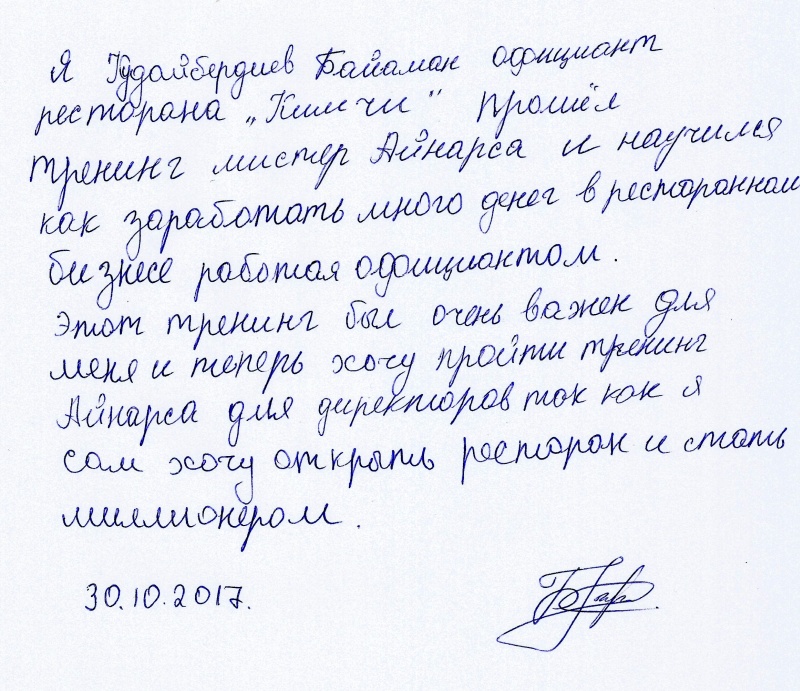 Я Кудайбердиев Байаман официант
ресторана „Кимчи" прошёл
тренинг мистер Айнарса и научился
как заработать много денег в ресторанном
бизнесе работая официантом.
Этот тренинг был очень важен для
меня и теперь хочу пройти тренинг
Айнарса для директоров так как я
сам хочу открыть ресторан и стать
миллионером.
30.10.2017.